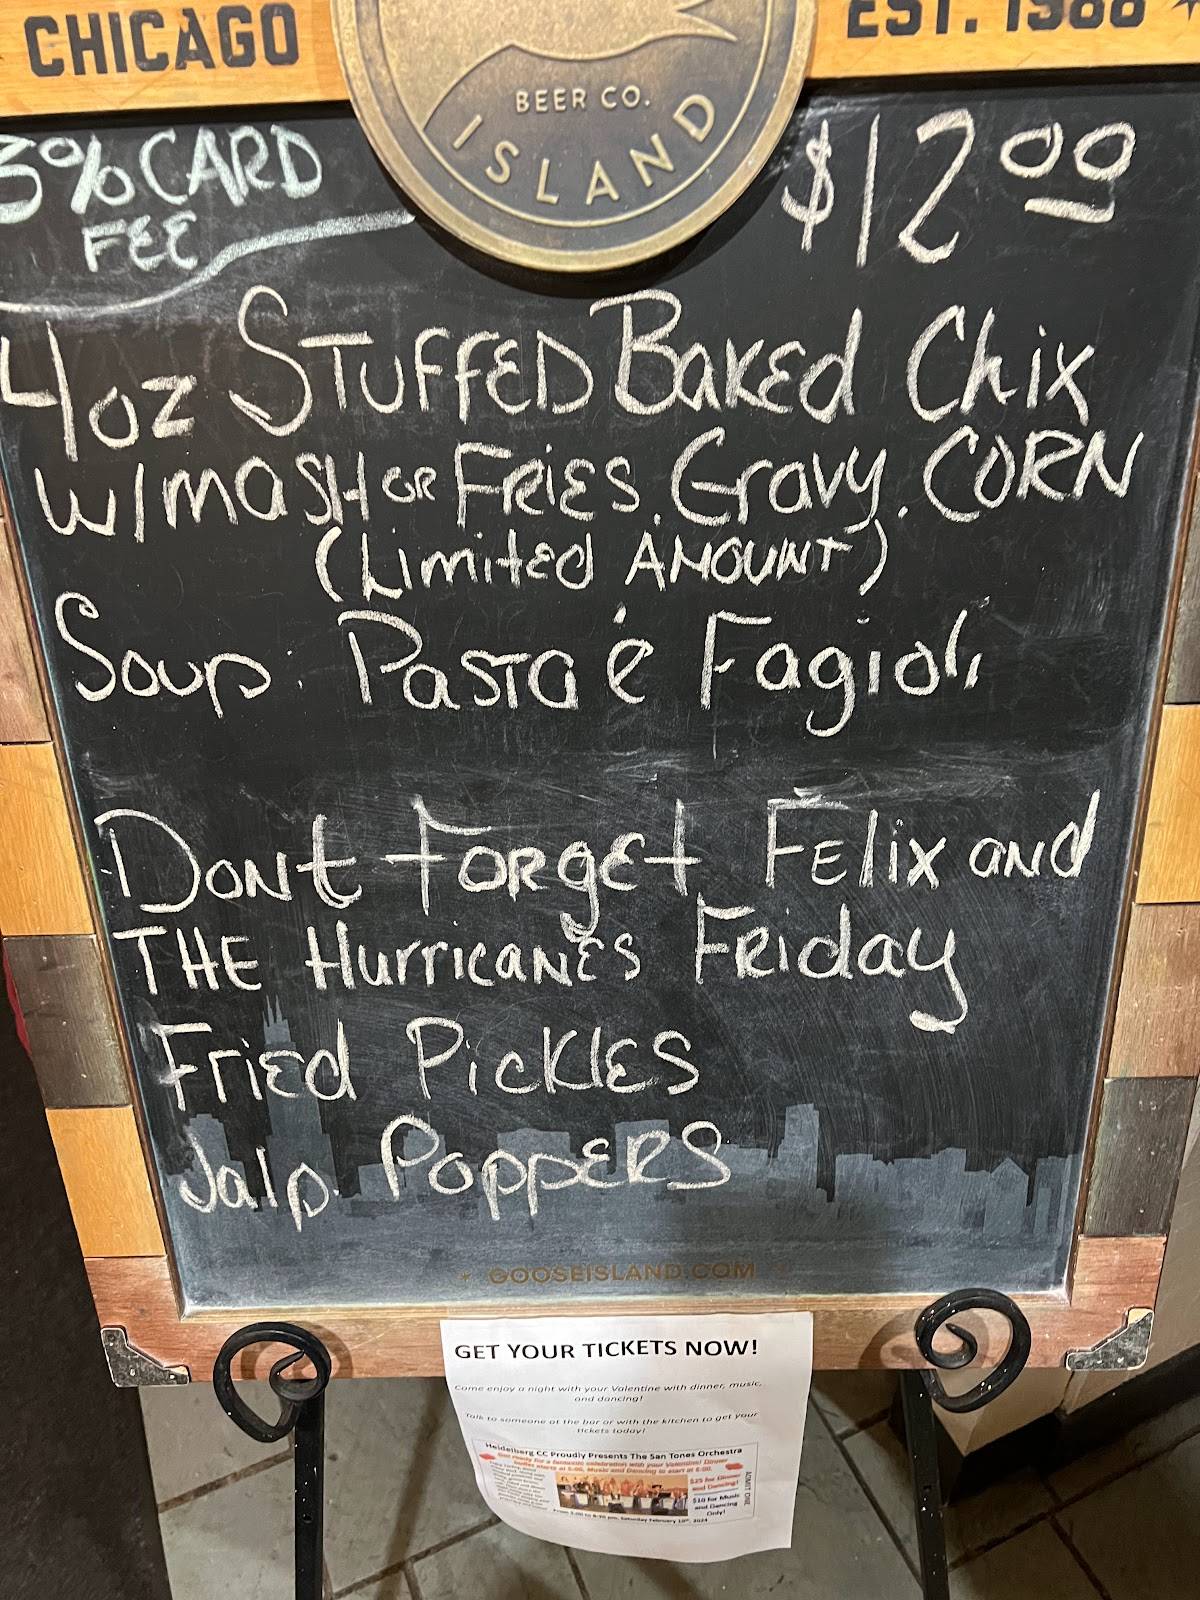 CHICAGO
EST. 1988
BEER CO.
ISLAND
3% CARD
FEE
$12.00
4oz STUFFED BAKED Chix
w/MASH OR FRIES. Gravy. CORN
(Limited AMOUNT)
Soup: Pasta é Fagioli
Dont Forget Felix and
THE Hurricanes Friday
Fried Pickles
Jalp. Poppers
GOOSEISLAND.COM
GET YOUR TICKETS NOW!
Come enjoy a night with your Valentine with dinner, music,
and dancing!
Talk to someone at the bar or with the kitchen to get your
tickets today!
Heidelberg CC Proudly Presents The San Tones Orchestra
Get ready for a fantastic celebration with your Valentine! Dinner
buffet starts at 5:00, Music and Dancing to start at 6:00.
$25 for Dinner
and Dancing!
$10 for Music
and Dancing
Only!
ADMIT ONE
Saturday February 10th, 2024